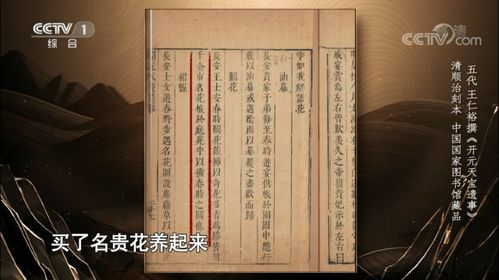 CCTV 1
综合
CCTV.com
央视网
五代 王仁裕撰《开元天宝遗事》
清顺治刻本 中国国家图书馆藏品
戚宴賞焉左右皆歎羨久之帝指貴妃示於左右曰
爭如我解語花
油幕
長安貴家子弟每至春時遊宴供帳於園圃中隨行
載以油幕或遇陰雨以幕覆之盡歡而歸
鬬花
長安王士安春時鬬花戴插以奇花多者爲勝皆用
千金市名花植於庭苑中以備春時之鬬也
裙幄
長安士女遊春野步遇名花則設席藉草以紅裙
买了名贵花养起来